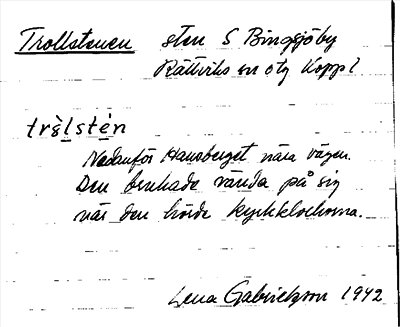 Trollstenen sten S Bingsjöby
Rättviks sn otg Koppl
trɔ̀lstén
Nedanför Hansberget nära vägen.
Den brukade vända på sig
när den hörde kyrkklockorna.
Lena Gabrielsson 1942